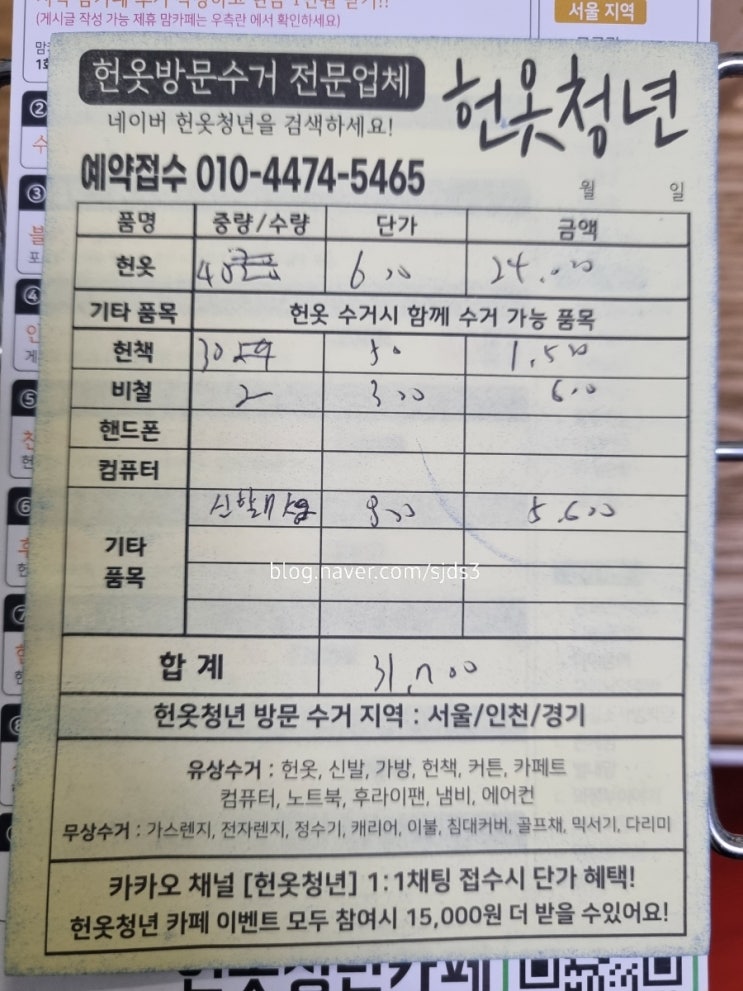 (게시글 작성 가능 제휴 맘카페는 우측란 에서 확인하세요)
서울 지역
헌옷방문수거 전문업체
헌옷청년
네이버 헌옷청년을 검색하세요!
예약접수 010-4474-5465
월 일
품명 중량/수량 단가 금액
헌옷 40 600 24,000
기타 품목 헌옷 수거시 함께 수거 가능 품목
헌책 30 50 1,500
비철 2 300 600
핸드폰
컴퓨터
800 5,600
기타
품목
blog.naver.com/sjds3
합 계 31,700
헌옷청년 방문 수거 지역 : 서울/인천/경기
유상수거 : 헌옷, 신발, 가방, 헌책, 커튼, 카페트
컴퓨터, 노트북, 후라이팬, 냄비, 에어컨
무상수거 : 가스렌지, 전자렌지, 정수기, 캐리어, 이불, 침대커버, 골프채, 믹서기, 다리미
카카오 채널 [헌옷청년] 1:1채팅 접수시 단가 혜택!
헌옷청년 카페 이벤트 모두 참여시 15,000원 더 받을 수있어요!